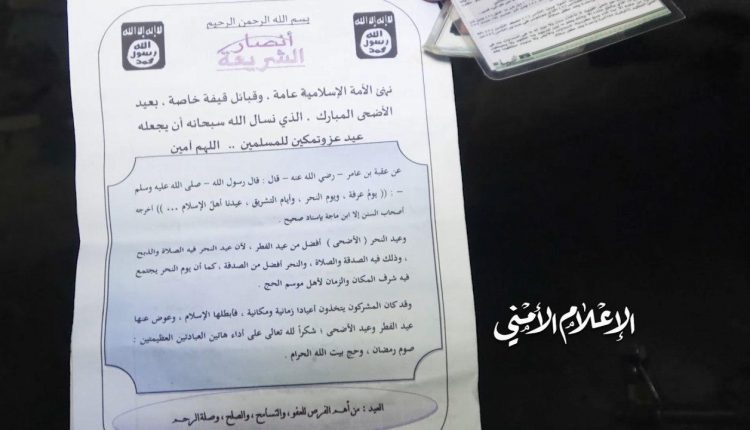 بسم الله الرحمن الرحيم
لا إله إلا الله
الله
رسول
محمد
أنصار
الشريعة
لا إله إلا الله
الله
رسول
محمد
نهنئ الأمة الإسلامية عامة ، وقبائل قيفة خاصة ، بعيد
الأضحى المبارك ، الذي نسال الله سبحانه أن يجعله
عيد عز وتمكين للمسلمين .. اللهم آمين
عن عقبة بن عامر – رضي الله عنه – قال : قال رسول الله – صلى الله عليه وسلم
– : (( يومُ عرفة ، ويوم النحر ، وأيام التشريق ، عيدنا أهلَ الإسلام ... )) أخرجه
أصحاب السنن إلا ابن ماجة بإسناد صحيح .
وعيد النحر ( الأضحى ) أفضل من عيد الفطر ، لأن عيد النحر فيه الصلاة والذبح
، وذلك فيه الصدقة والصلاة ، والنحر أفضل من الصدقة ، كما أن يوم النحر يجتمع
فيه شرف المكان والزمان لأهل موسم الحج .
وقد كان المشركون يتخذون أعيادا زمانية ومكانية ، فأبطلها الإسلام ، وعوض عنها
عيد الفطر وعيد الأضحى ؛ شكراً لله تعالى على أداء هاتين العبادتين العظيمتين :
صوم رمضان ، وحج بيت الله الحرام .
العيد : من أهم الفرص للعفو، والتسامح ، والصلح ، وصلة الرحم
الإعلام الأمني